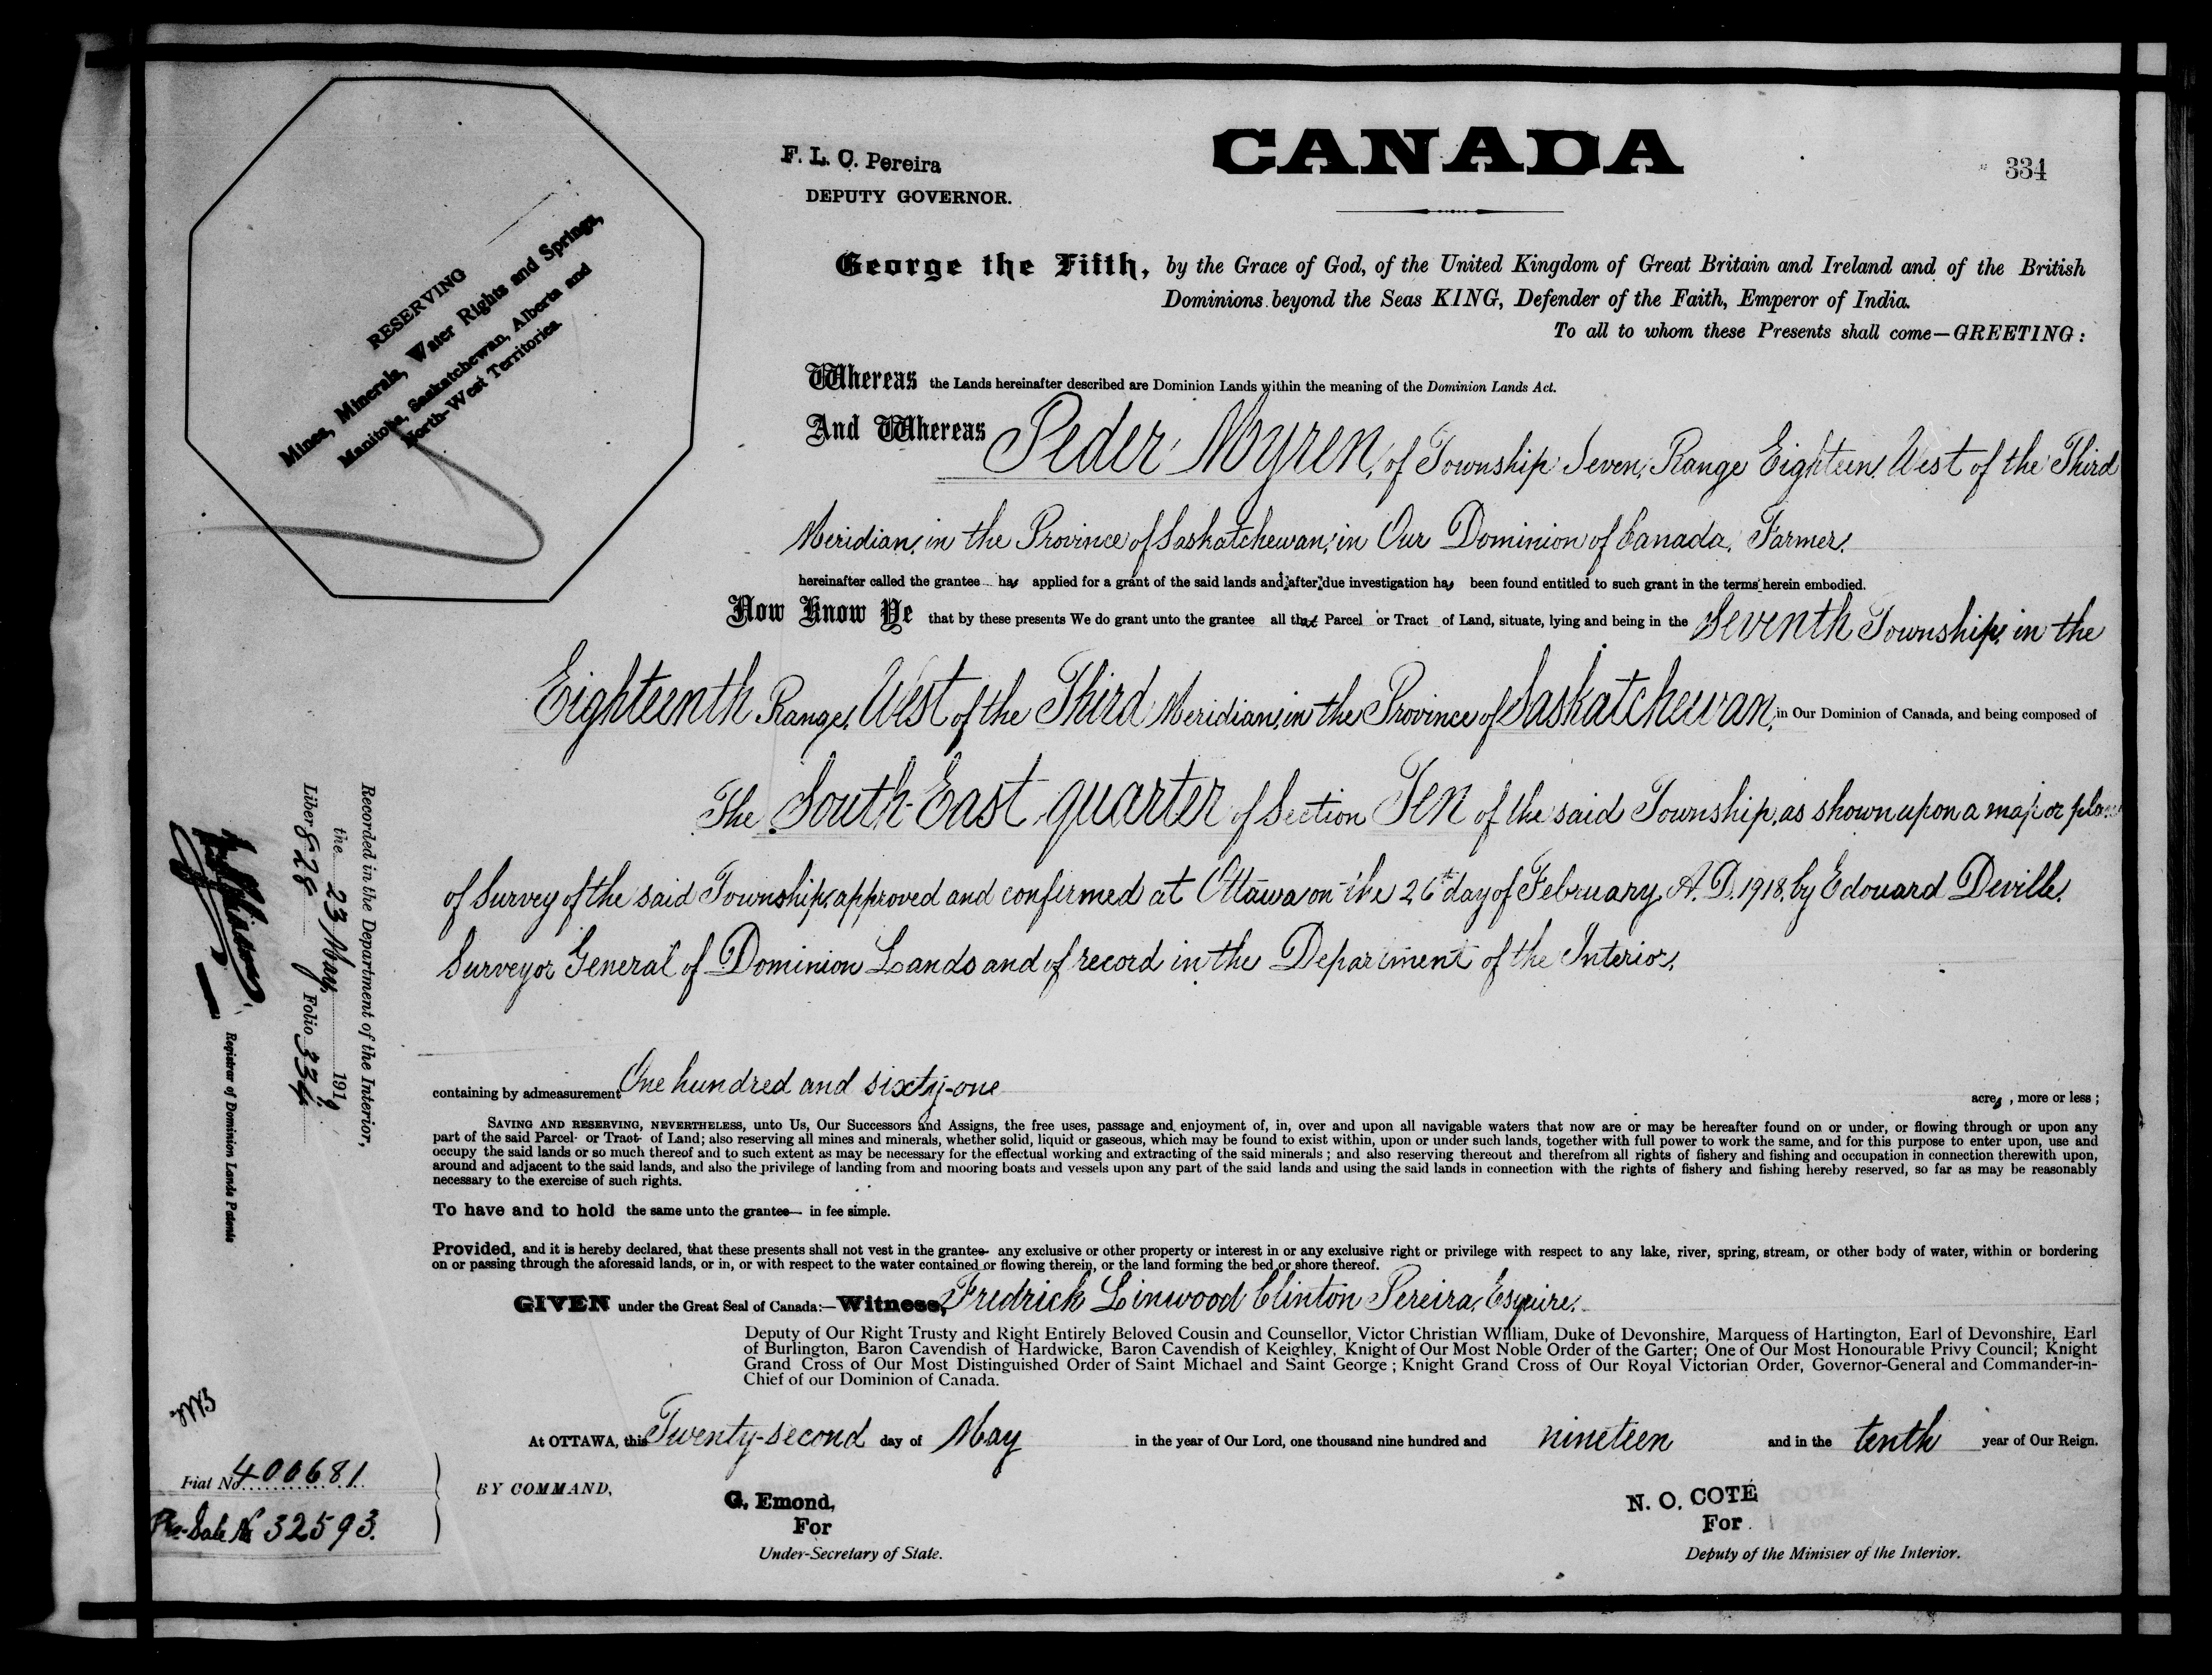 CANADA
334
F. L. C. Pereira
DEPUTY GOVERNOR.
RESERVING
Mines, Minerals, Water Rights and Springs,
Manitoba, Saskatchewan, Alberta and
North-West Territories
George the Fifth, by the Grace of God, of the United Kingdom of Great Britain and Ireland and of the British
Dominions beyond the Seas KING, Defender of the Faith, Emperor of India.
To all to whom these Presents shall come—GREETING:
Whereas the Lands hereinafter described are Dominion Lands within the meaning of the Dominion Lands Act.
And Whereas Peder Myren, of Township Seven, Range Eighteen, West of the Third
Meridian, in the Province of Saskatchewan, in Our Dominion of Canada, Farmer,
hereinafter called the grantee has applied for a grant of the said lands and, after due investigation has been found entitled to such grant in the terms herein embodied.
Now Know Ye that by these presents We do grant unto the grantee all that Parcel or Tract of Land, situate, lying and being in the Seventh Township, in the
Eighteenth Range, West of the Third Meridian, in the Province of Saskatchewan, in Our Dominion of Canada, and being composed of
The South-East quarter of Section Ten of the said Township, as shown upon a map or plan
of Survey of the said Township, approved and confirmed at Ottawa on the 26th day of February, A.D. 1918, by Edouard Deville,
Surveyor General of Dominion Lands and of record in the Department of the Interior,
containing by admeasurement One hundred and sixty-one acres, more or less;
SAVING AND RESERVING, NEVERTHELESS, unto Us, Our Successors and Assigns, the free uses, passage and enjoyment of, in, over and upon all navigable waters that now are or may be hereafter found on or under, or flowing through or upon any
part of the said Parcel or Tract of Land; also reserving all mines and minerals, whether solid, liquid or gaseous, which may be found to exist within, upon or under such lands, together with full power to work the same, and for this purpose to enter upon, use and
occupy the said lands or so much thereof and to such extent as may be necessary for the effectual working and extracting of the said minerals; and also reserving thereout and therefrom all rights of fishery and fishing and occupation in connection therewith upon,
around and adjacent to the said lands, and also the privilege of landing from and mooring boats and vessels upon any part of the said lands and using the said lands in connection with the rights of fishery and fishing hereby reserved, so far as may be reasonably
necessary to the exercise of such rights.
To have and to hold the same unto the grantee— in fee simple.
Provided, and it is hereby declared, that these presents shall not vest in the grantee- any exclusive or other property or interest in or any exclusive right or privilege with respect to any lake, river, spring, stream, or other body of water, within or bordering
on or passing through the aforesaid lands, or in, or with respect to the water contained or flowing therein, or the land forming the bed or shore thereof.
GIVEN under the Great Seal of Canada:—Witness, Fredrick Linwood Clinton Pereira, Esquire,
Deputy of Our Right Trusty and Right Entirely Beloved Cousin and Counsellor, Victor Christian William, Duke of Devonshire, Marquess of Hartington, Earl of Devonshire, Earl
of Burlington, Baron Cavendish of Hardwicke, Baron Cavendish of Keighley, Knight of Our Most Noble Order of the Garter; One of Our Most Honourable Privy Council; Knight
Grand Cross of Our Most Distinguished Order of Saint Michael and Saint George; Knight Grand Cross of Our Royal Victorian Order, Governor-General and Commander-in-
Chief of our Dominion of Canada.
At OTTAWA, this Twenty-second day of May in the year of Our Lord, one thousand nine hundred and nineteen and in the tenth year of Our Reign.
BY COMMAND,
G. Emond,
For
Under-Secretary of State.
N. O. COTÉ
For
Deputy of the Minister of the Interior.
Recorded in the Department of the Interior,
the 23 May, 1919
Liber 828 Folio 334
Registrar of Dominion Lands Patents
Fiat No. 400681
Pre-Sale No 32593.